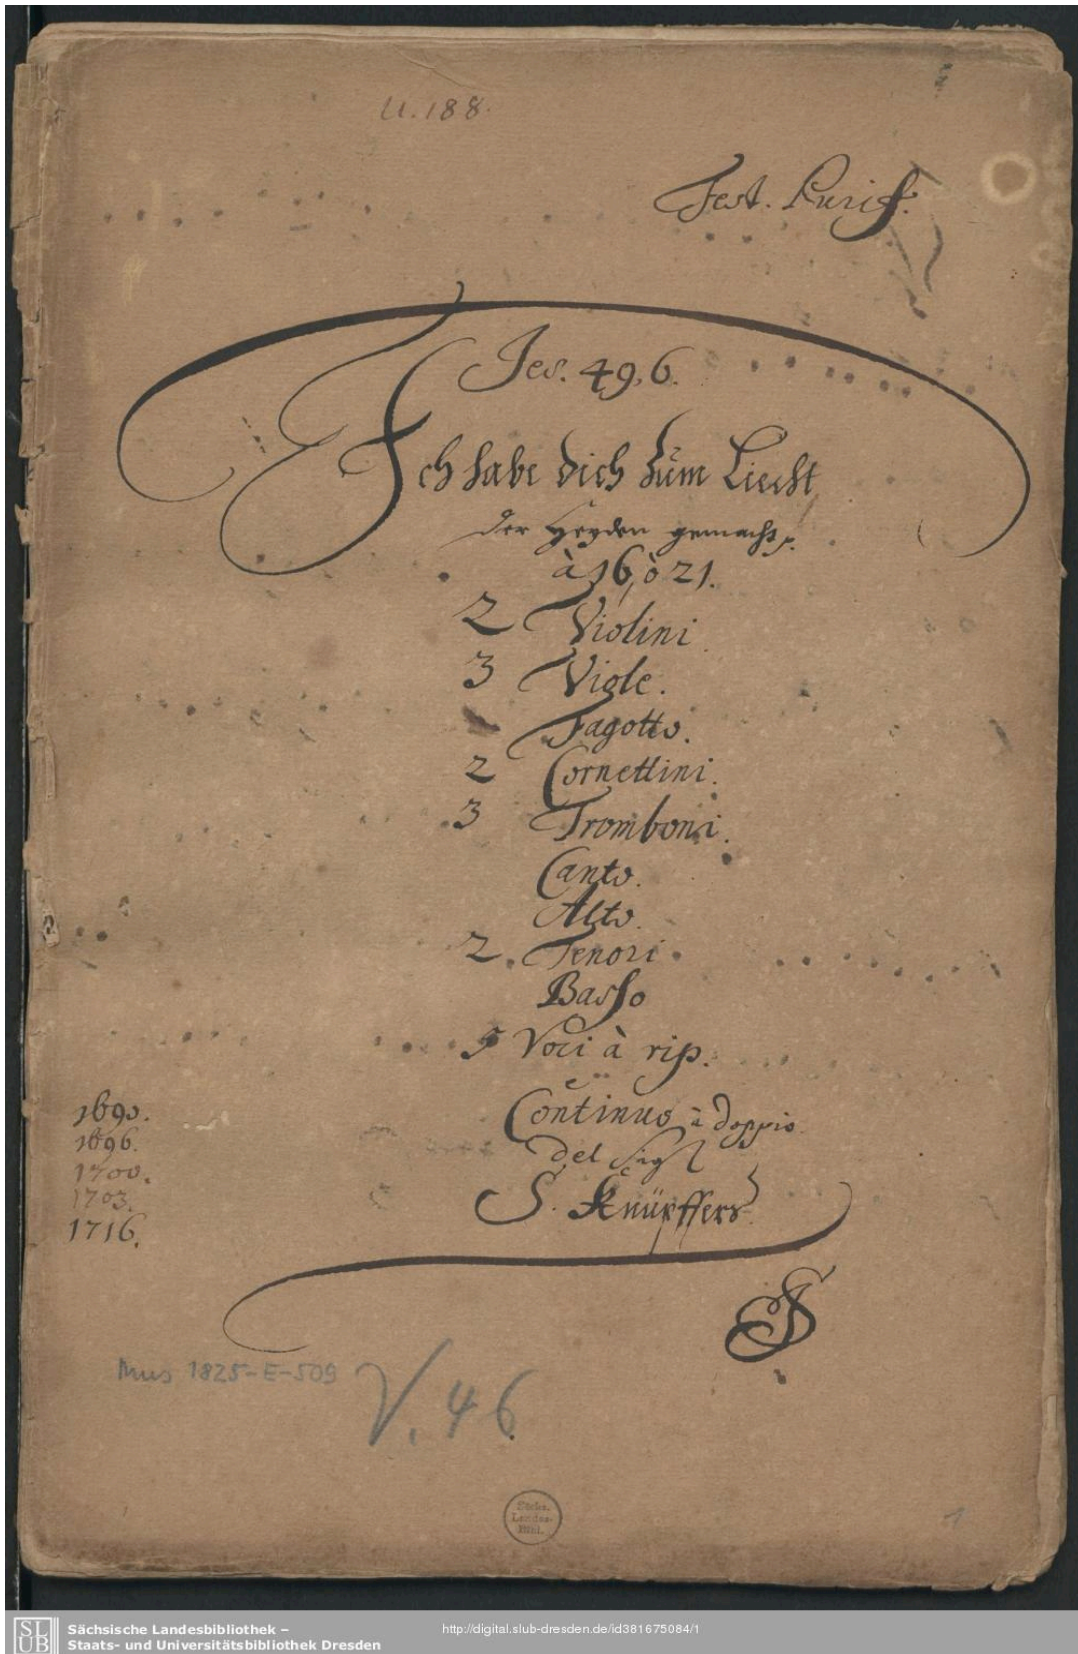 U.188.
Fest. Purif.
Jes. 49, 6.
Ich habe dich zum Liecht
der Heyden gemacht
à 16, ò 21.
2 Violini
3 Viole.
Fagotto.
2 Cornettini.
3 Tromboni.
Canto.
Alto.
2. Tenori
Basso
5 Voci à rip.
e
Continuo à doppio.
del Sig
S. Knüpffers
1690.
1696.
1700.
1703.
1716.
Mus 1825-E-509
V. 46
Sächs.
Landes-
Bibl.
1
SL
UB
Sächsische Landesbibliothek –
Staats- und Universitätsbibliothek Dresden
http://digital.slub-dresden.de/id381675084/1